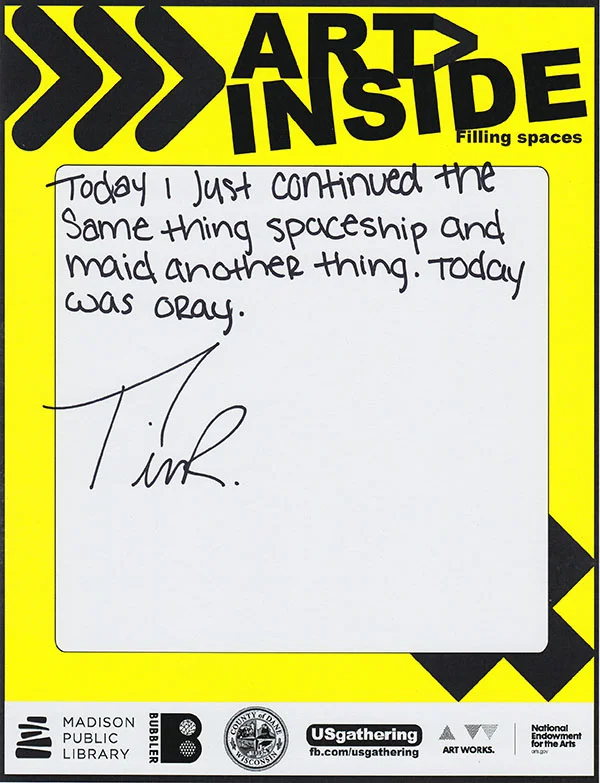 ART>
INSIDE
Filling spaces
Today I Just continued the
Same thing spaceship and
maid another thing. Today
was okay.
MADISON
PUBLIC
LIBRARY
BUBBLER
B
COUNTY of DANE
WISCONSIN
USgathering
fb.com/usgathering
ART WORKS.
National
Endowment
for the Arts
arts.gov